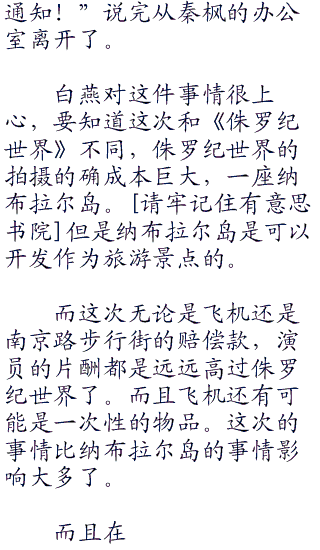 通知！”说完从秦枫的办公
室离开了。
白燕对这件事情很上
心，要知道这次和《侏罗纪
世界》不同，侏罗纪世界的
拍摄的确成本巨大，一座纳
布拉尔岛。[请牢记住有意思
书院]但是纳布拉尔岛是可以
开发作为旅游景点的。
而这次无论是飞机还是
南京路步行街的赔偿款，演
员的片酬都是远远高过侏罗
纪世界了。而且飞机还有可
能是一次性的物品。这次的
事情比纳布拉尔岛的事情影
响大多了。
而且在